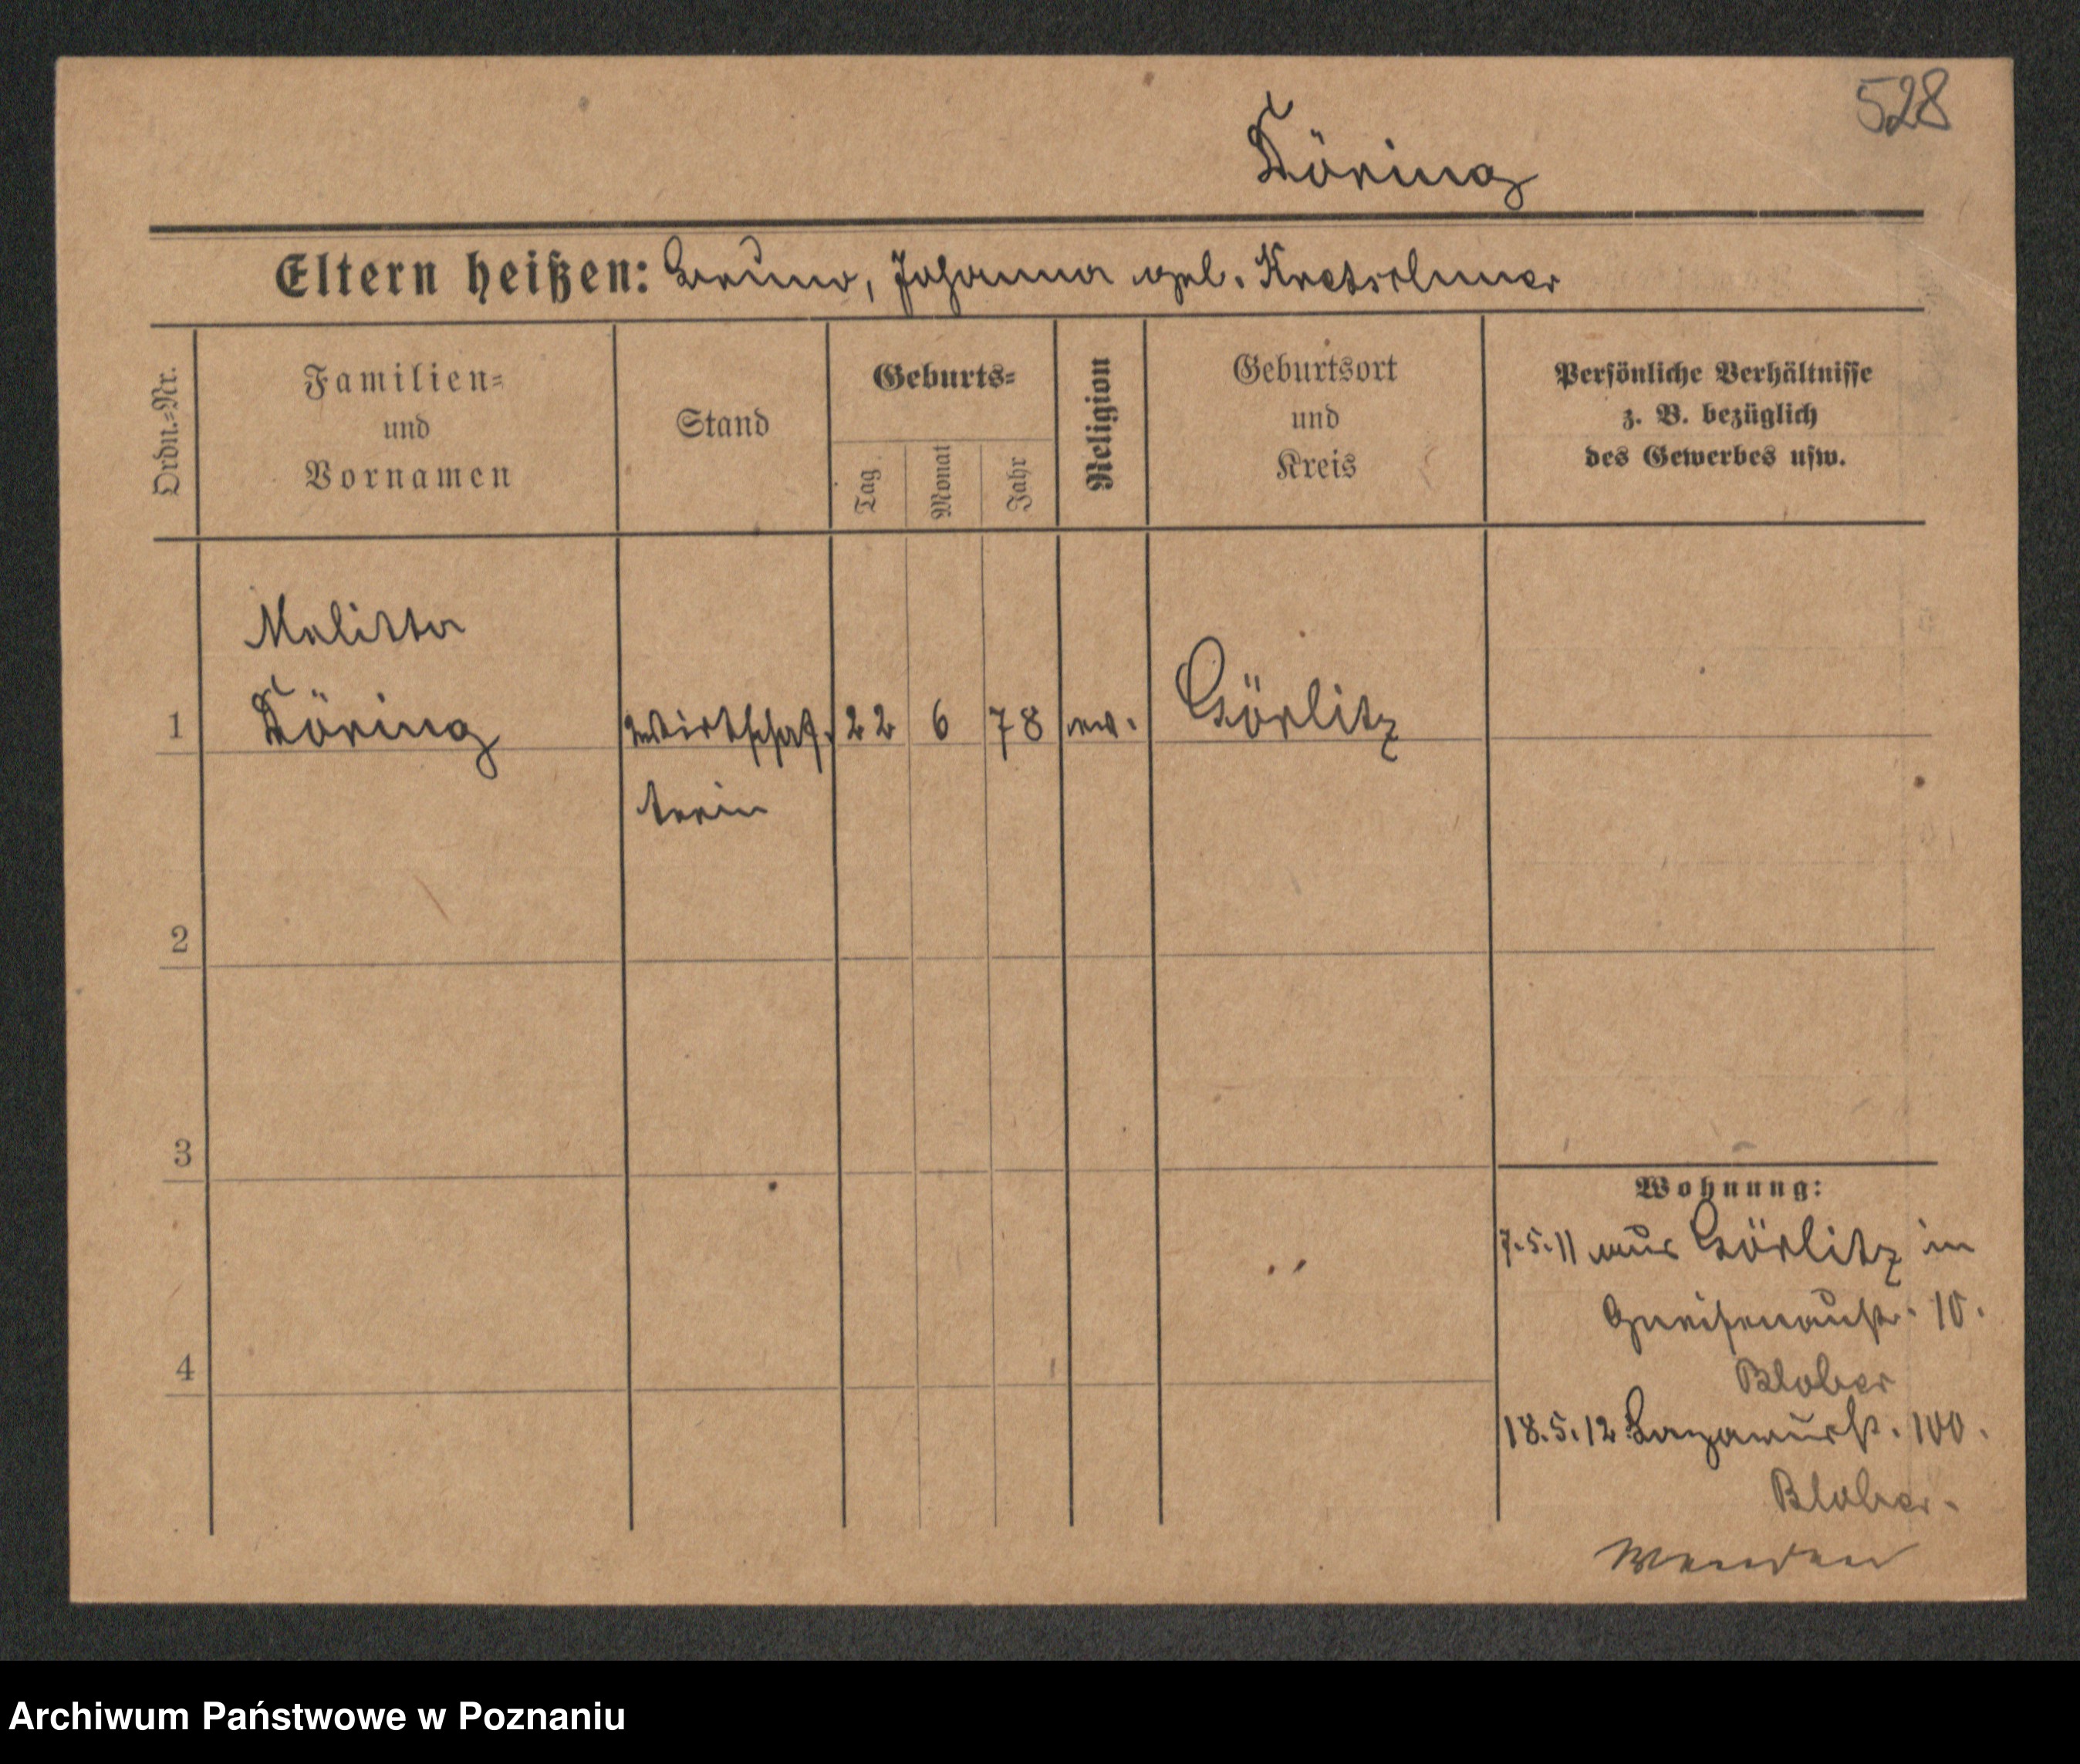 528
Döring
Eltern heißen: Bruno, Johanna geb. Kretschmer
Ordn.=Nr.
Familien=
und
Vornamen
Stand
Geburts=
Tag
Monat
Jahr
Religion
Geburtsort
und
Kreis
Persönliche Verhältnisse
z. B. bezüglich
des Gewerbes usw.
Melitta
1 Döring Wirtschaf- 22 6 78 ev. Görlitz
terin
2
3
4
Wohnung:
7.5.11 aus Görlitz in
Gneisenaustr. 10.
18.5.12 100.
Wenden
Archiwum Państwowe w Poznaniu